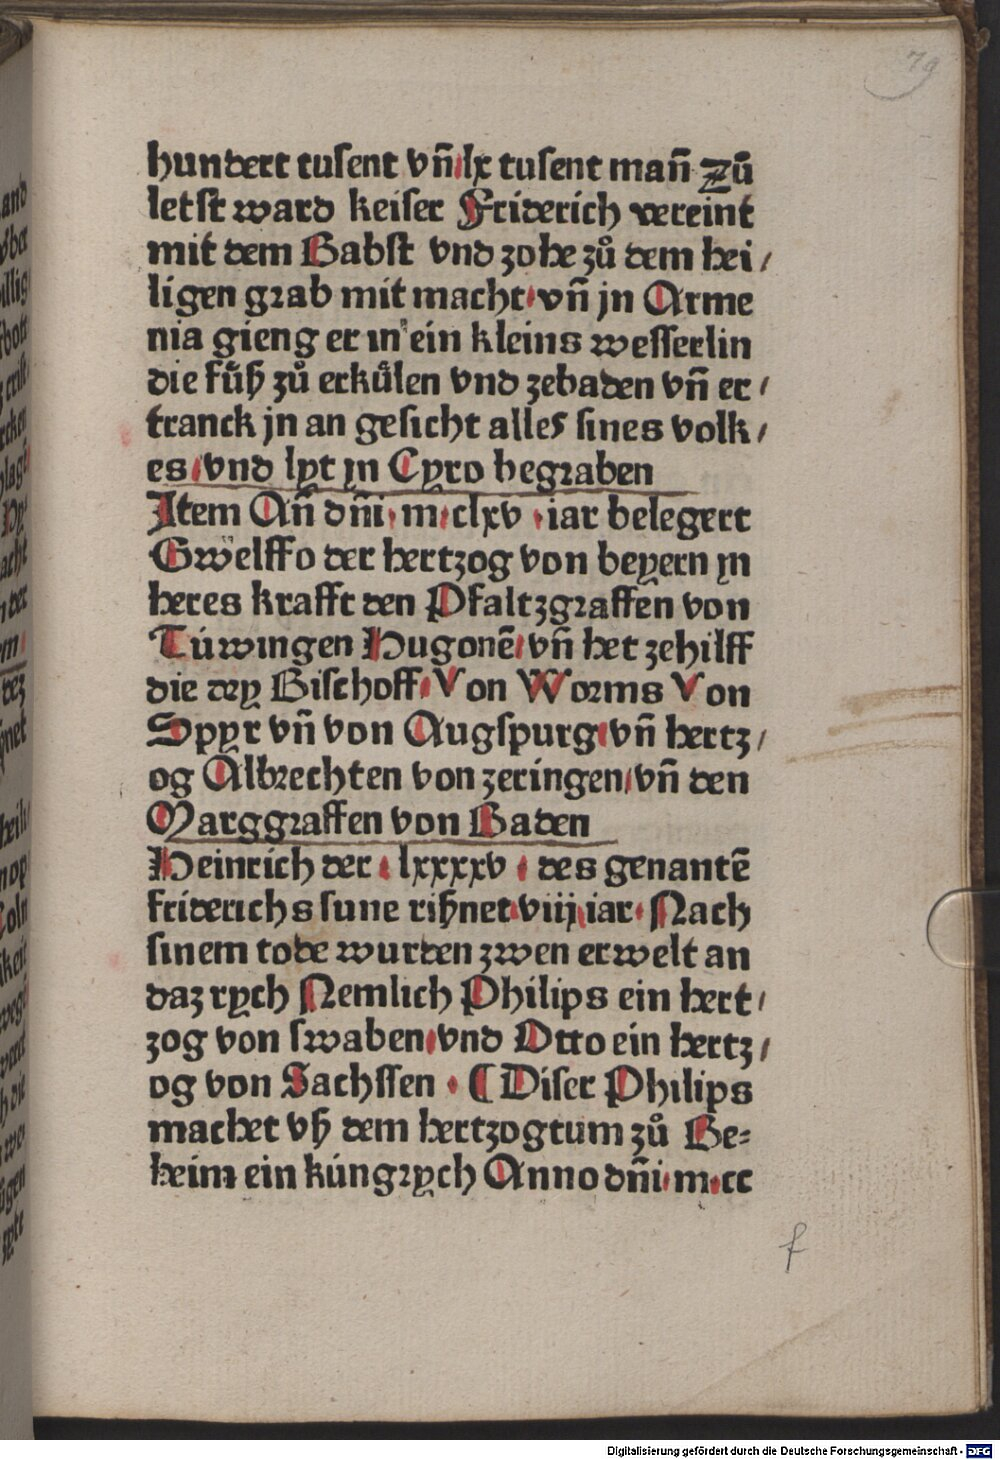 79
hundert tusent vn̄ lx tusent man̄ Zů
letst ward keiser Friderich vereint
mit dem Babst vnd zohe zů dem hei/
ligen grab mit macht vn̄ jn Arme
nia gieng er in ein kleins wesserlin
die fůß zů erkůlen vnd zebaden vn̄ er/
tranck jn an gesicht alles sines volk/
es vnd lyt jn Cyro begraben
Item An̄ dn̄i m clxv iar belegert
Gwelffo der hertzog von beyern jn
heres krafft den Pfaltzgraffen von
Túwingen Hugonē vn̄ het zehilff
die dry Bischoff Von Worms Von
Spyr vn̄ von Augspurg vn̄ hertz/
og Albrechten von zeringen vn̄ den
Marggraffen von Baden
Heinrich der lxxxxv des genantē
friderichs sune rißnet viij iar Nach
sinem tode wurden zwen erwelt an
daz rych Nemlich Philips ein hert/
zog von swaben vnd Otto ein hertz/
og von Sachssen · ¶ Diser Philips
machet vß dem hertzogtum zů Be=
heim ein kúngrych Anno dn̄i m cc
f
Digitalisierung gefördert durch die Deutsche Forschungsgemeinschaft - DFG